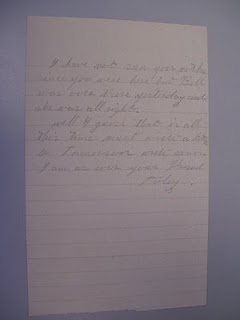 I have not seen your mother
since you were here but Bell
was over there yesterday and
she was all right.
well I guess that is all
this time must write a
to Tomorrow
I am as ever your friend